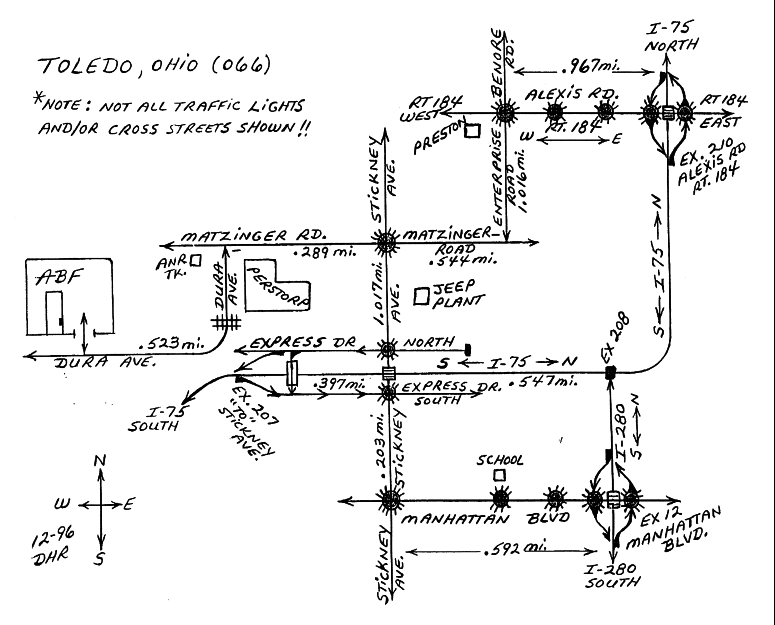 TOLEDO, OHIO (066)
*NOTE: NOT ALL TRAFFIC LIGHTS
AND/OR CROSS STREETS SHOWN!!
I-75
NORTH
BENORE
RD.
.967mi.
ALEXIS RD.
RT. 184
RT 184
WEST
RT 184
EAST
PRESTON
W E
EX. 210
ALEXIS RD
RT. 184
ENTERPRISE
ROAD
1.016mi.
STICKNEY
AVE.
S I-75 N
MATZINGER RD.
.289 mi.
MATZINGER
ROAD
.544mi.
ANR
TK.
DURA
AVE.
PERSTORP
1.017mi.
AVE.
JEEP
PLANT
ABF
.523mi.
DURA AVE.
EXPRESS DR NORTH
S I-75 N
EX 208
.397mi.
EXPRESS DR. .547mi.
SOUTH
I-75
SOUTH
EX. 207
"TO"
STICKNEY
AVE.
.203mi.
STICKNEY
I-280
S N
SCHOOL
MANHATTAN BLVD
EX 12
MANHATTAN
BLVD.
.592 mi.
STICKNEY
AVE.
I-280
SOUTH
N
W E
S
12-96
DHR